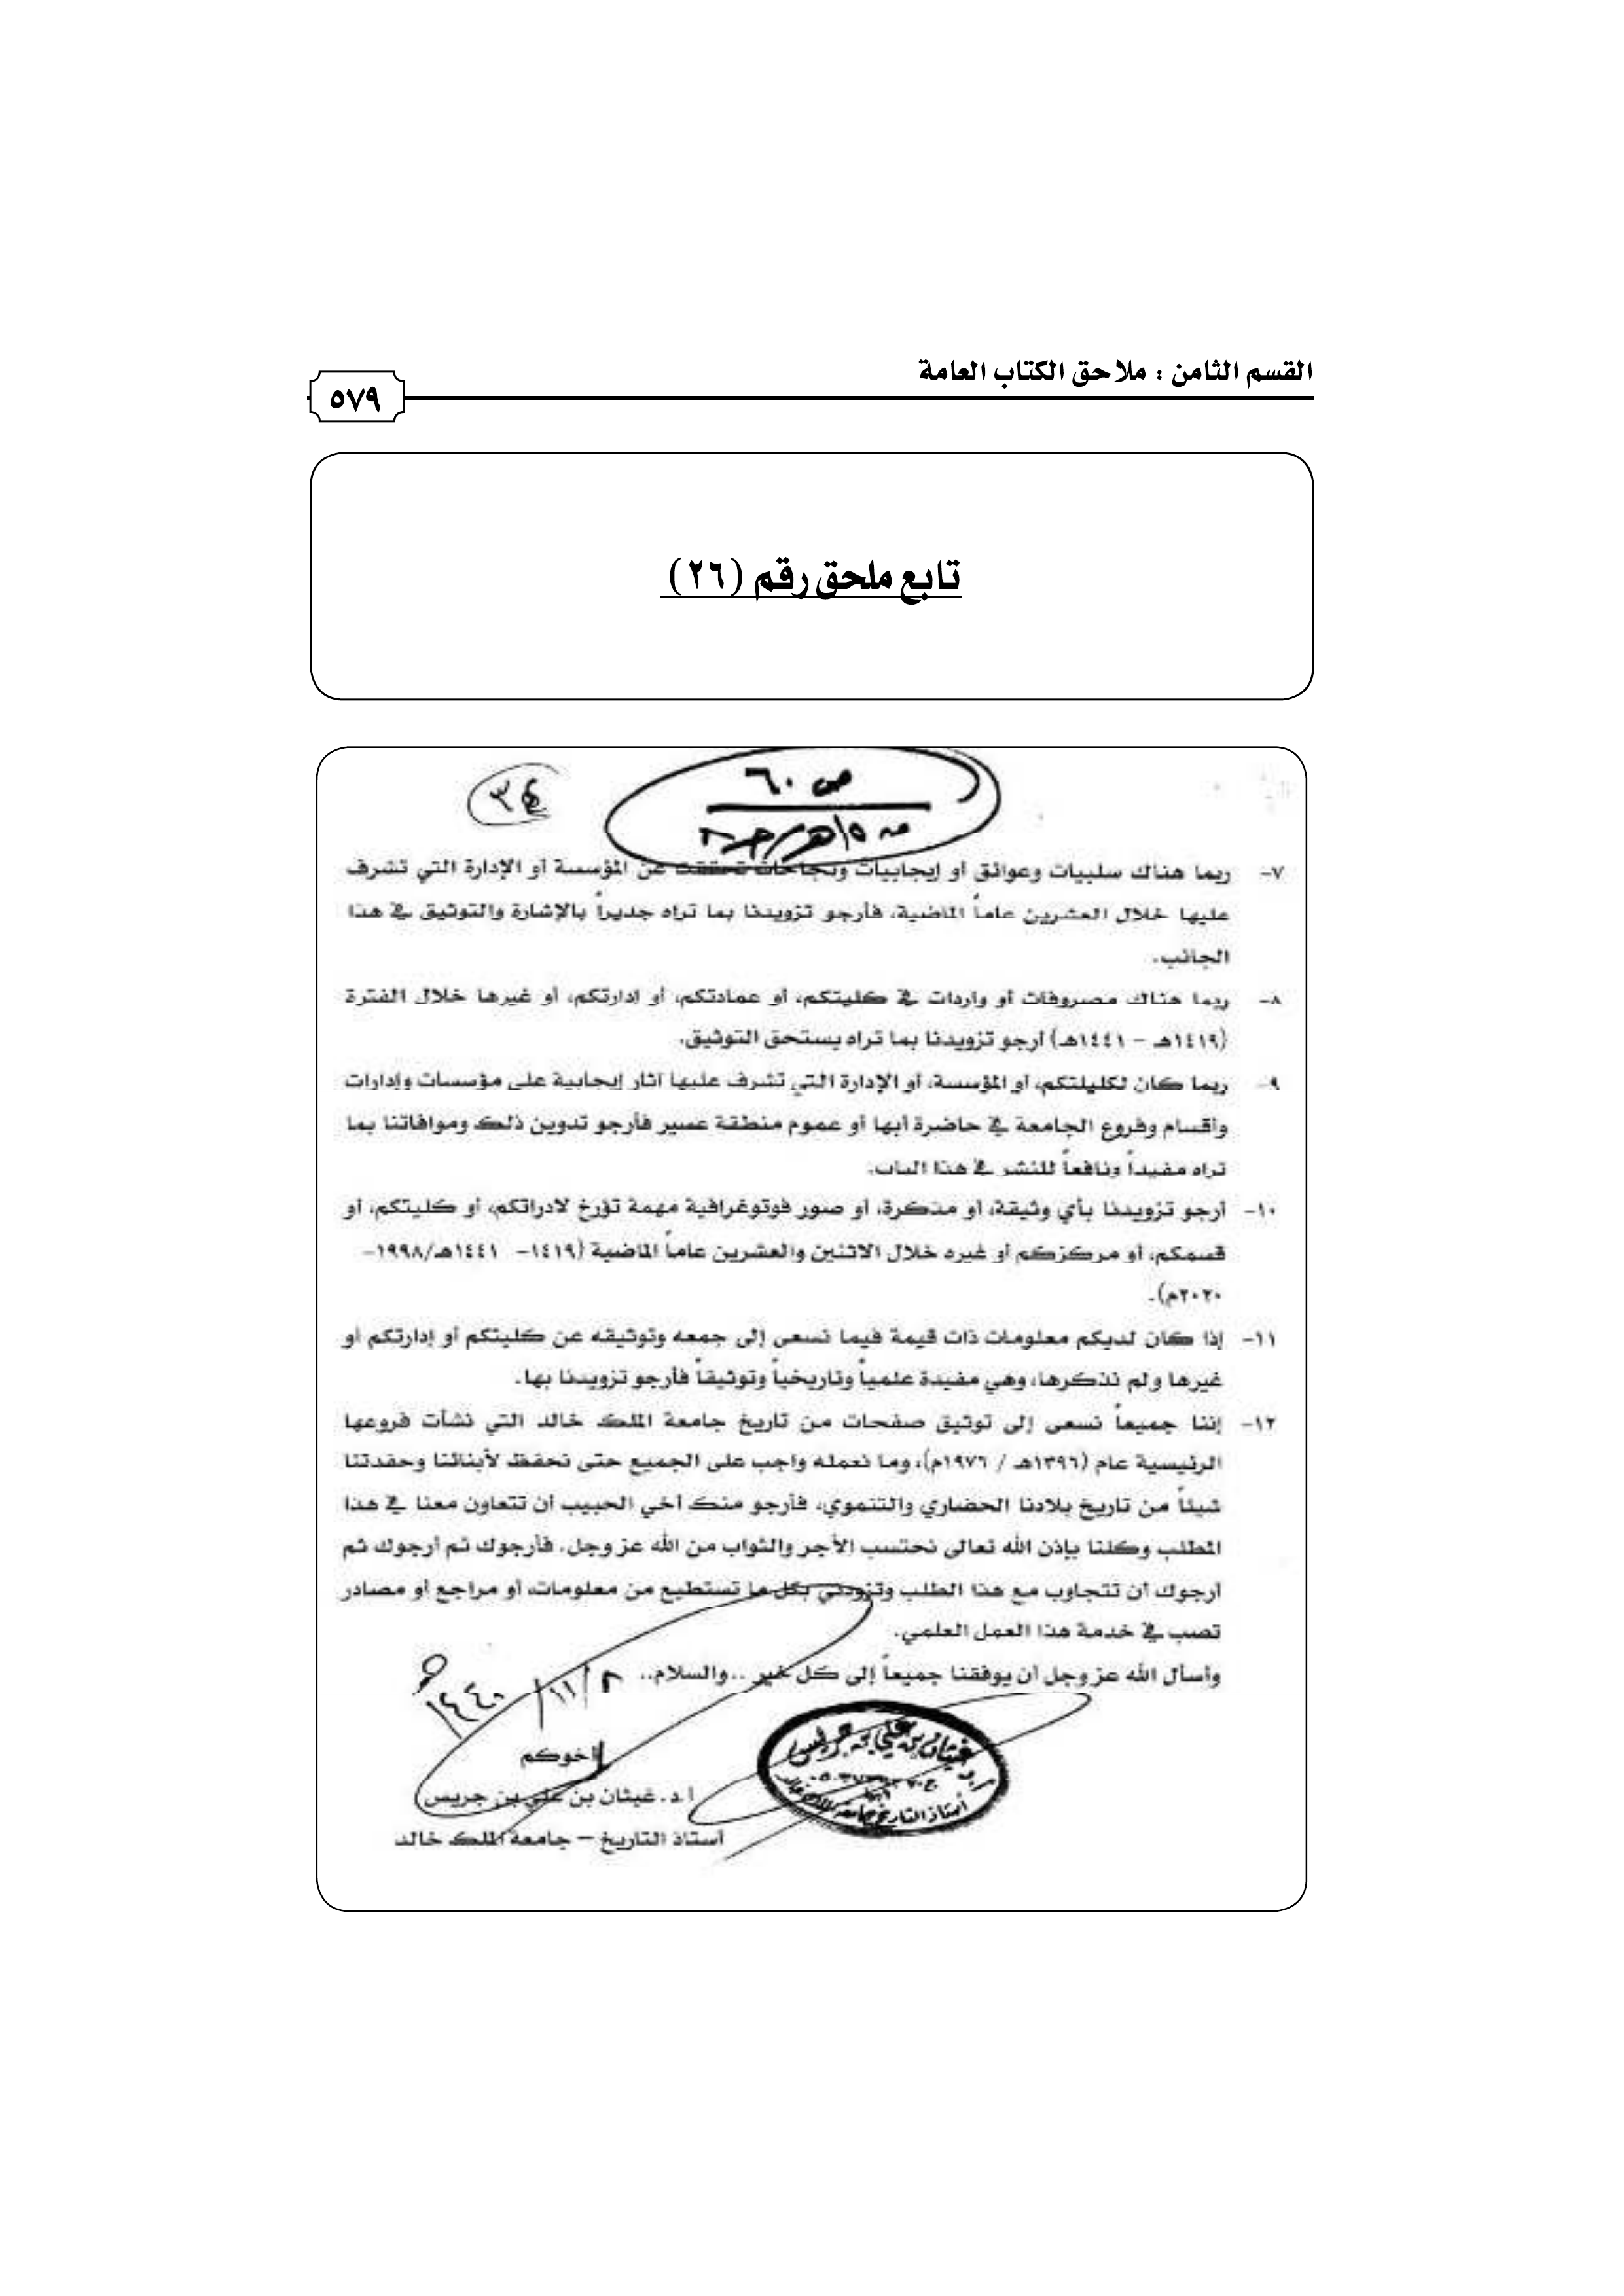 القسم الثامن : ملاحق الكتاب العامة
٥٧٩
تابع ملحق رقم (٢٦)
ص ٦٠
٣٤
٧- ربما هناك سلبيات وعوائق أو إيجابيات ونجاحات تحققت عن المؤسسة أو الإدارة التي تشرف
عليها خلال العشرين عاماً الماضية، فأرجو تزويدنا بما تراه جديراً بالإشارة والتوثيق في هذا
الجانب.
٨- ربما هناك مصروفات أو واردات في كليتكم، أو عمادتكم، أو إدارتكم، أو غيرها خلال الفترة
(١٤١٩هـ – ١٤٤١هـ) أرجو تزويدنا بما تراه يستحق التوثيق.
٩- ربما كان لكليلتكم، أو المؤسسة، أو الإدارة التي تشرف عليها آثار إيجابية على مؤسسات وإدارات
وأقسام وفروع الجامعة في حاضرة أبها أو عموم منطقة عسير فأرجو تدوين ذلك وموافاتنا بما
تراه مفيداً ونافعاً للنشر في هذا الباب.
١٠- أرجو تزويدنا بأي وثيقة، أو مذكرة، أو صور فوتوغرافية مهمة تؤرخ لادراتكم، أو كليتكم، أو
قسمكم، أو مركزكم أو غيره خلال الاثنين والعشرين عاماً الماضية (١٤١٩- ١٤٤١هـ/١٩٩٨-
٢٠٢٠م).
١١- إذا كان لديكم معلومات ذات قيمة فيما نسعى إلى جمعه وتوثيقه عن كليتكم أو إدارتكم أو
غيرها ولم نذكرها، وهي مفيدة علمياً وتاريخياً وتوثيقاً فأرجو تزويدنا بها.
١٢- إننا جميعاً نسعى إلى توثيق صفحات من تاريخ جامعة الملك خالد التي نشأت فروعها
الرئيسية عام (١٣٩٦هـ / ١٩٧٦م)، وما نعمله واجب على الجميع حتى نحفظ لأبنائنا وحفدتنا
شيئاً من تاريخ بلادنا الحضاري والتنموي، فأرجو منك أخي الحبيب أن تتعاون معنا في هذا
المطلب وكلنا بإذن الله تعالى نحتسب الأجر والثواب من الله عز وجل، فأرجوك ثم أرجوك ثم
أرجوك أن تتجاوب مع هذا الطلب وتزودني بكل ما تستطيع من معلومات، أو مراجع أو مصادر
تصب في خدمة هذا العمل العلمي.
وأسأل الله عز وجل أن يوفقنا جميعاً إلى كل خير ..والسلام..
٢/١١/١٤٤٠هـ
أخوكم
أ.د. غيثان بن علي بن جريس
أستاذ التاريخ – جامعة الملك خالد
أ.د. غيثان بن علي بن جريس
أبها
أستاذ التاريخ جامعة الملك خالد